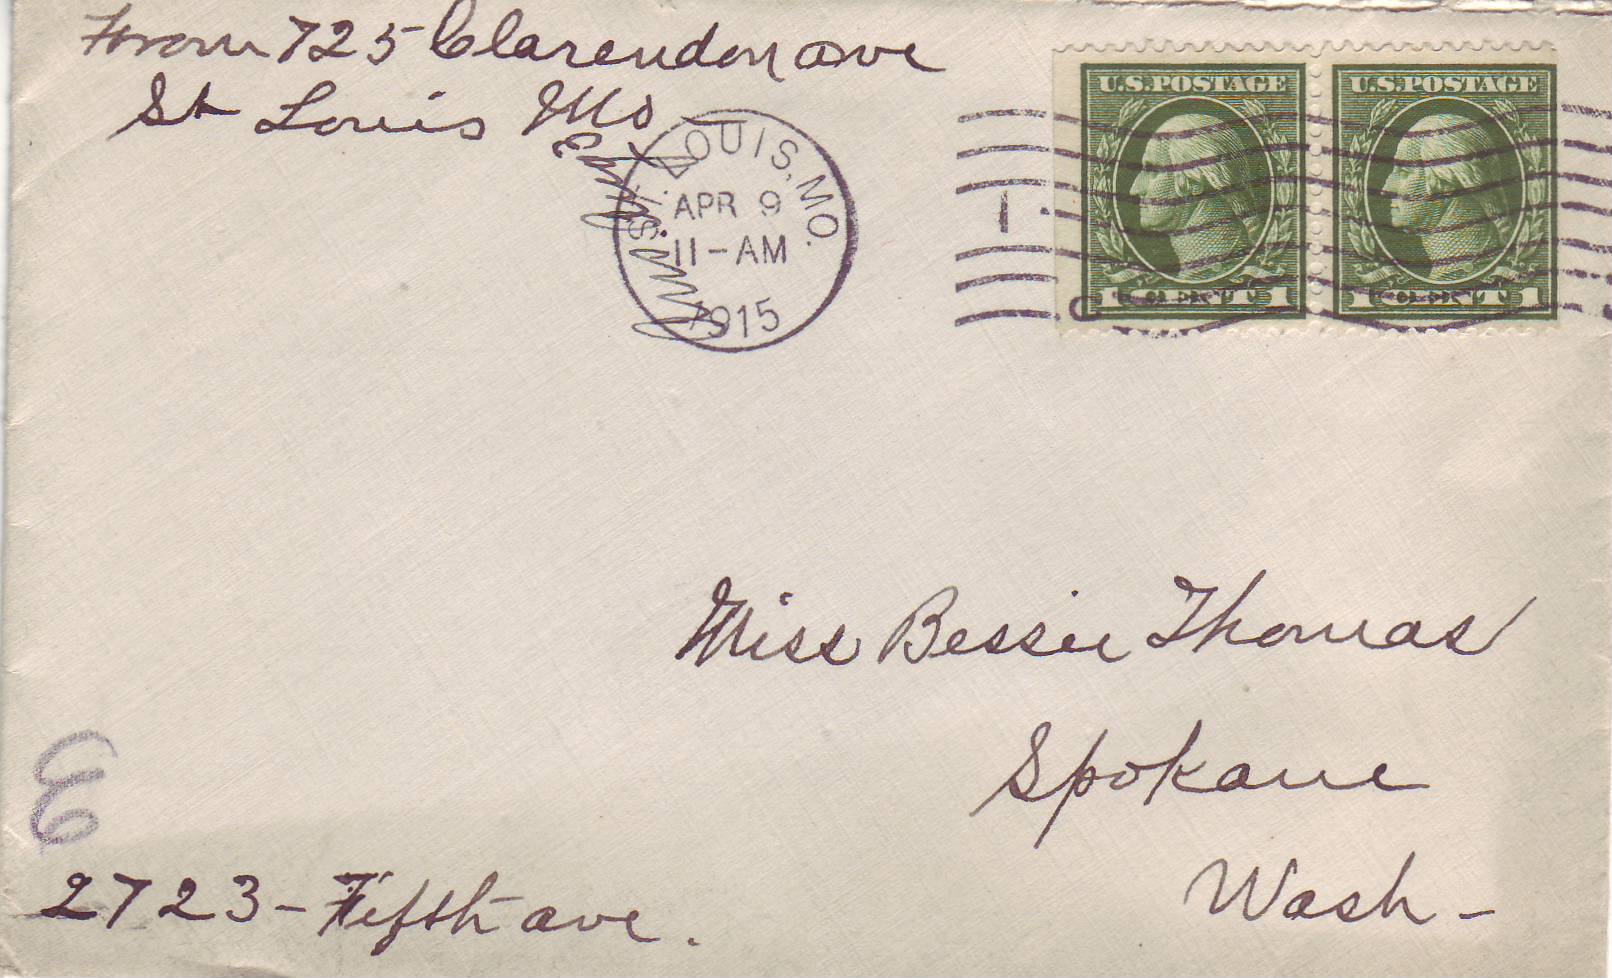 From 725 Clarendon ave
St Louis Mo
ST. LOUIS, MO.
APR 9
11-AM
1915
1
U.S. POSTAGE
1 1
U.S. POSTAGE
1 1
Miss Bessie Thomas
Spokane
Wash-
E
2723-Fifth ave.